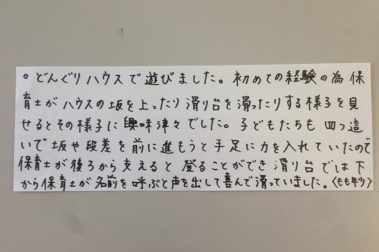 。どんぐりハウスで遊びました。初めての経験の為保
育士がハウスの坂を上ったり滑り台を滑ったりする様子を見
せるとその様子に興味津々でした。子どもたちも四つ這
いで坂や段差を前に進もうと手足に力を入れていたので
保育士が後ろから支えると登ることができ滑り台では下
から保育士が名前を呼ぶと声を出して喜んで滑っていました。(もも年少)